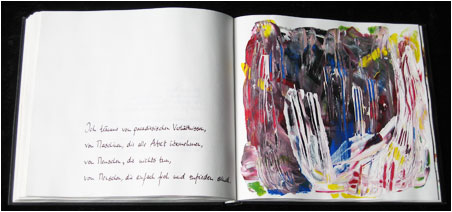 Ich träume von paradiesischen Verhältnissen,
von Maschinen, die alle Arbeit übernehmen,
von Menschen, die nichts tun,
von Menschen, die einfach froh und zufrieden sind.